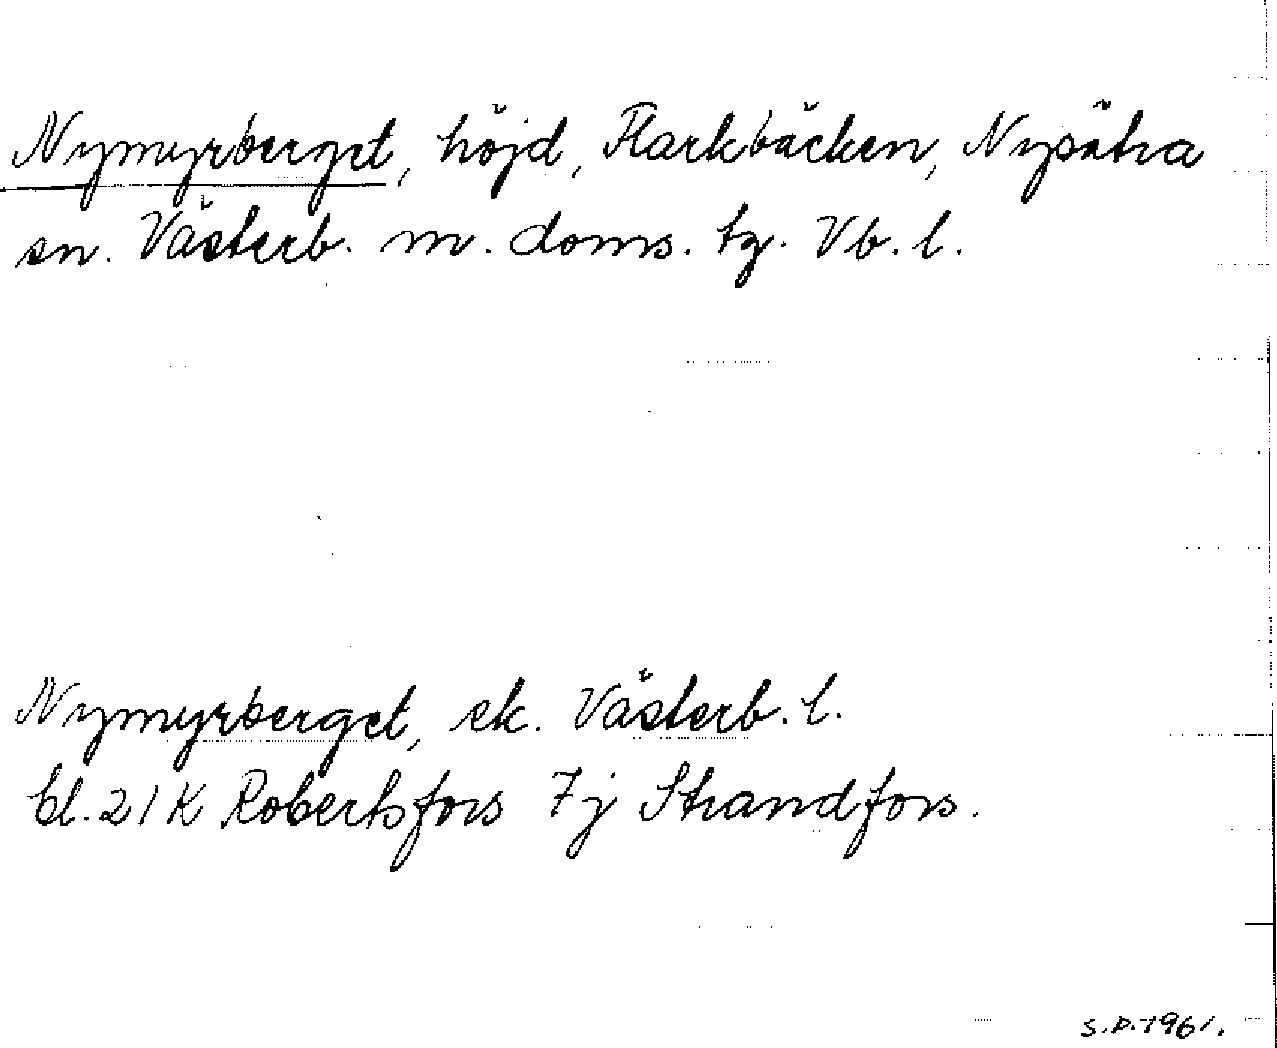 Nymyrberget, höjd, Flarkbäcken, Nysätra
sn. Västerb. m. doms. tg. Vb. l.
Nymyrberget, ek. Västerb. l.
bl. 21K Robertsfors 7j Strandfors.
S.D. 1961.